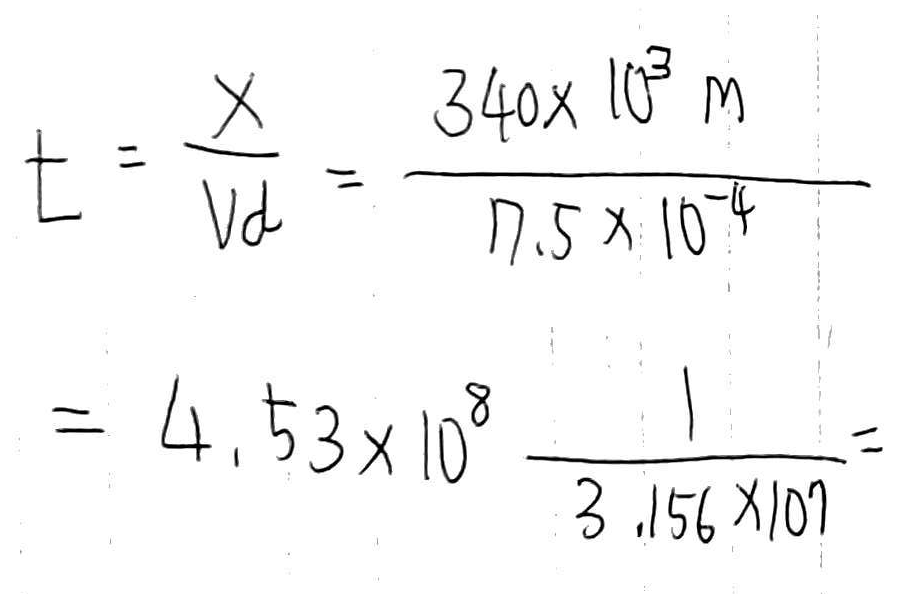 t = x/Vd = 340 × 10³ m / 7.5 × 10⁻⁴
= 4.53 × 10⁸ 1 / 3.156 × 10⁷ =